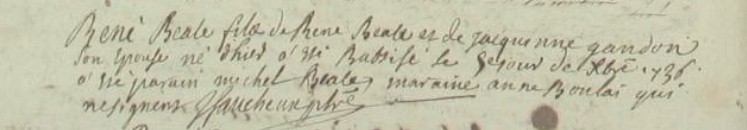 René Beale filz de Rene Beale et de jacquinne gandon
son epouse né d'hier a esté Batisé le 9e jour de xbre 1736
a été parain michel Beale maraine anne Boulai qui
ne signent ptre